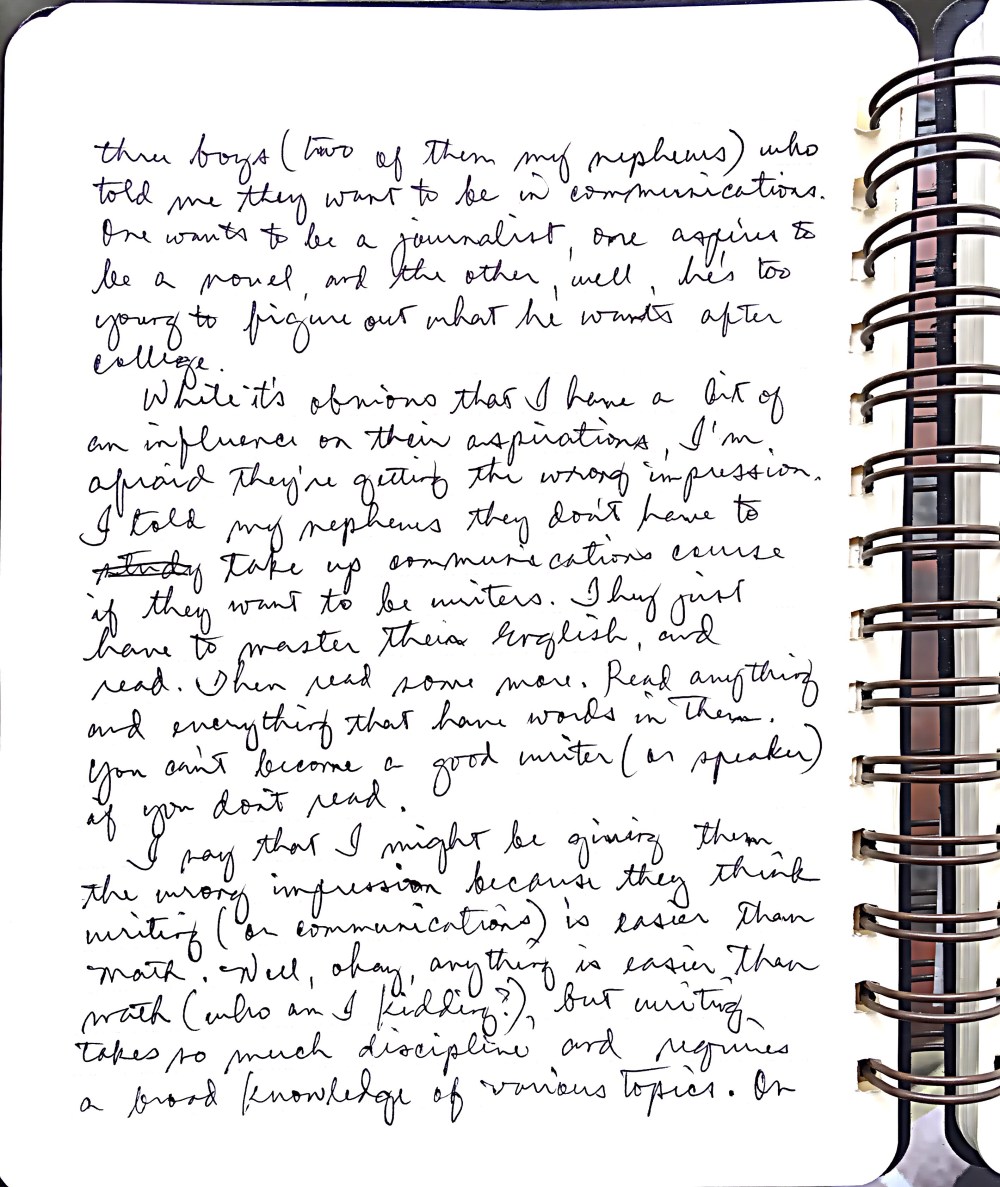 three boys (two of them my nephews) who
told me they want to be in communications.
One wants to be a journalist, one aspires to
be a novel, and the other, well, he's too
young to figure out what he wants after
college.
While it's obvious that I have a bit of
an influence on their aspirations, I'm
afraid they're getting the wrong impression.
I told my nephews they don't have to
study take up communications course
if they want to be writers. They just
have to master their English, and
read. Then read some more. Read anything
and everything that have words in them.
You can't become a good writer (or speaker)
if you don't read.
I say that I might be giving them
the wrong impression because they think
writing (or communications) is easier than
math. Well, okay, anything is easier than
math (who am I kidding?), but writing
takes so much discipline and requires
a broad knowledge of various topics. Or